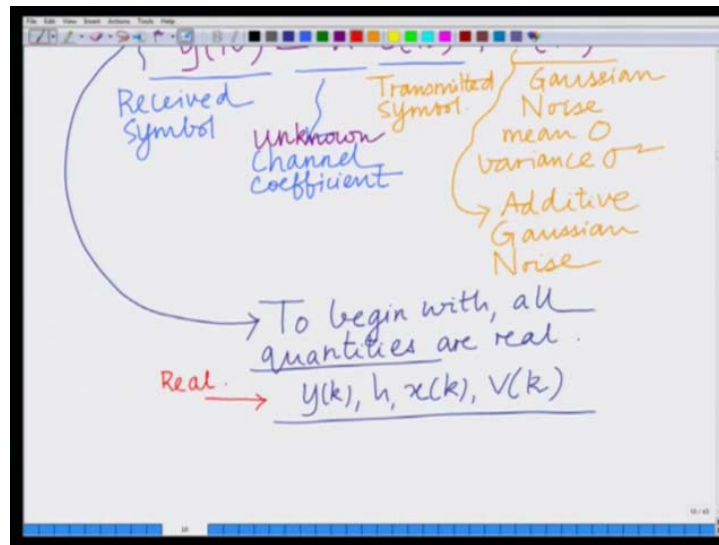 File Edit View Insert Actions Tools Help
Received Symbol
unknown Channel Coefficient
Transmitted Symbol.
Gaussian Noise mean 0 variance σ²
Additive Gaussian Noise
To begin with, all
quantities are real.
Real.
y(k), h, x(k), V(k)